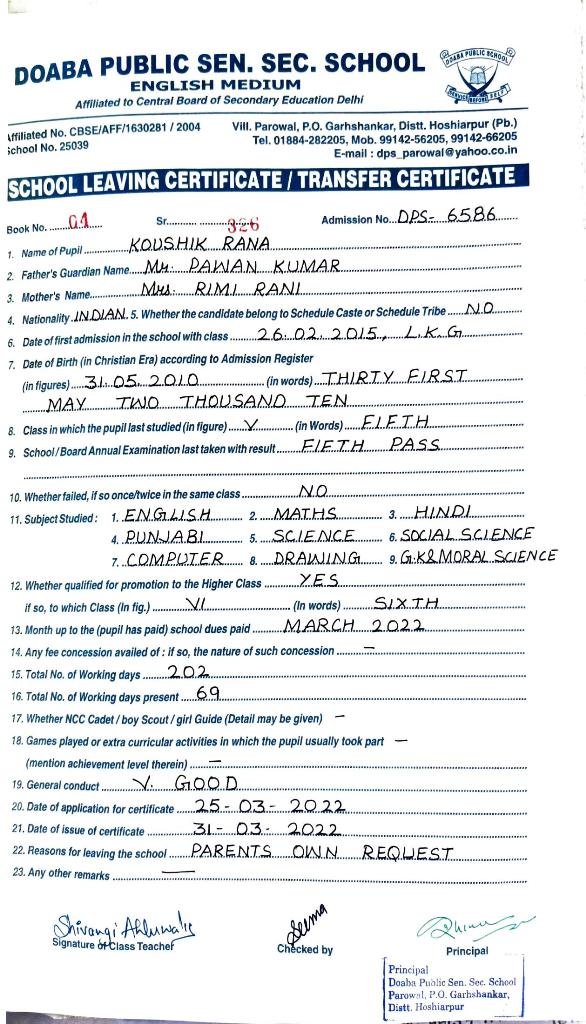 DOABA PUBLIC SEN. SEC. SCHOOL
ENGLISH MEDIUM
Affiliated to Central Board of Secondary Education Delhi
DOABA PUBLIC SCHOOL
SERVICE BEFORE SELF
Affiliated No. CBSE/AFF/1630281 / 2004
School No. 25039
Vill. Parowal, P.O. Garhshankar, Distt. Hoshiarpur (Pb.)
Tel. 01884-282205, Mob. 99142-56205, 99142-66205
E-mail : dps_parowal@yahoo.co.in
SCHOOL LEAVING CERTIFICATE / TRANSFER CERTIFICATE
Book No. 01 Sr. 326 Admission No. DPS- 6586
1. Name of Pupil KOUSHIK RANA
2. Father's Guardian Name Mr. PAWAN KUMAR
3. Mother's Name Mrs. RIMI RANI
4. Nationality INDIAN 5. Whether the candidate belong to Schedule Caste or Schedule Tribe NO
6. Date of first admission in the school with class 26.02.2015, L.K.G
7. Date of Birth (in Christian Era) according to Admission Register
(in figures) 31.05.2010 (in words) THIRTY FIRST
MAY TWO THOUSAND TEN
8. Class in which the pupil last studied (in figure) V (in Words) FIFTH
9. School / Board Annual Examination last taken with result FIFTH PASS
10. Whether failed, if so once/twice in the same class NO
11. Subject Studied : 1. ENGLISH 2. MATHS 3. HINDI
4. PUNJABI 5. SCIENCE 6. SOCIAL SCIENCE
7. COMPUTER 8. DRAWING 9. G.K & MORAL SCIENCE
12. Whether qualified for promotion to the Higher Class YES
if so, to which Class (In fig.) VI (In words) SIXTH
13. Month up to the (pupil has paid) school dues paid MARCH 2022
14. Any fee concession availed of : if so, the nature of such concession –
15. Total No. of Working days 202
16. Total No. of Working days present 69
17. Whether NCC Cadet / boy Scout / girl Guide (Detail may be given) –
18. Games played or extra curricular activities in which the pupil usually took part –
(mention achievement level therein) –
19. General conduct V. GOOD
20. Date of application for certificate 25-03-2022
21. Date of issue of certificate 31-03-2022
22. Reasons for leaving the school PARENTS OWN REQUEST
23. Any other remarks —
Shivangi Ahluwalia Seema
Signature of Class Teacher Checked by Principal
Principal
Doaba Public Sen. Sec. School
Parowal, P.O. Garhshankar,
Distt. Hoshiarpur